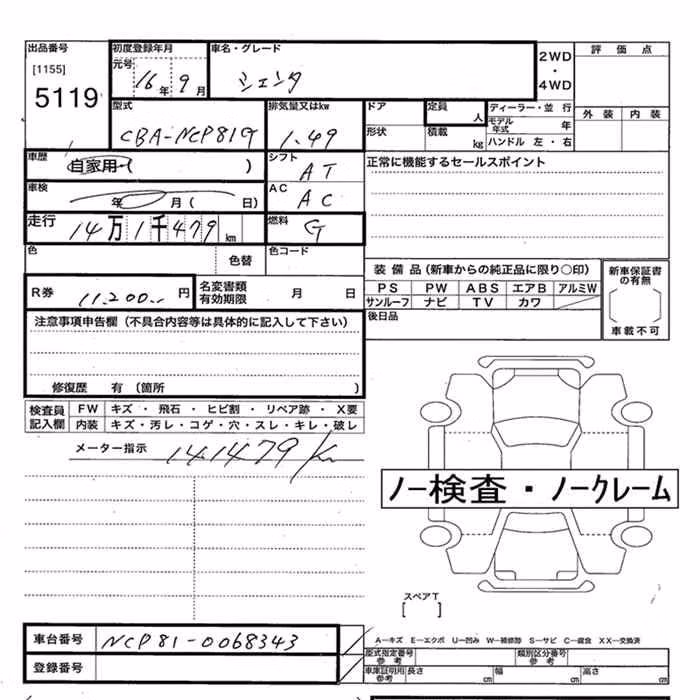 出品番号 初度登録年月 車名・グレード 2WD 評価点
[1155] 元号 ・
5119 16年 9月 シエンタ 4WD
型式 排気量又はkw ドア 定員 人 ディーラー・並行 外装 内装
CBA-NCP81G 1.49 形状 積載 kg モデル年式 年
ハンドル 左・右
車歴 自家用・( ) シフト AT 正常に機能するセールスポイント
車検 年 月( 日) AC AC
走行 14万1千479km 燃料 G
色 色替 色コード
装備品(新車からの純正品に限り○印) 新車保証書の有無
R券 11,200.- 円 名変書類有効期限 月 日 PS PW ABS エアB アルミW
サンルーフ ナビ TV カワ
車載不可
注意事項申告欄(不具合内容等は具体的に記入して下さい) 後日品
修復歴 有 (箇所 )
検査員記入欄 FW キズ・飛石・ヒビ割・リペア跡・X要
内装 キズ・汚レ・コゲ・穴・スレ・キレ・破レ
メーター指示 141479km
ノー検査・ノークレーム
スペアT
[ ]
車台番号 NCP81-0068343 A―キズ E―エクボ U―凹み W―補修跡 S―サビ C―腐食 XX―交換済
登録番号 型式指定番号 参考 類別区分番号 参考
車庫証明用 参考 長さ cm 幅 cm 高さ cm